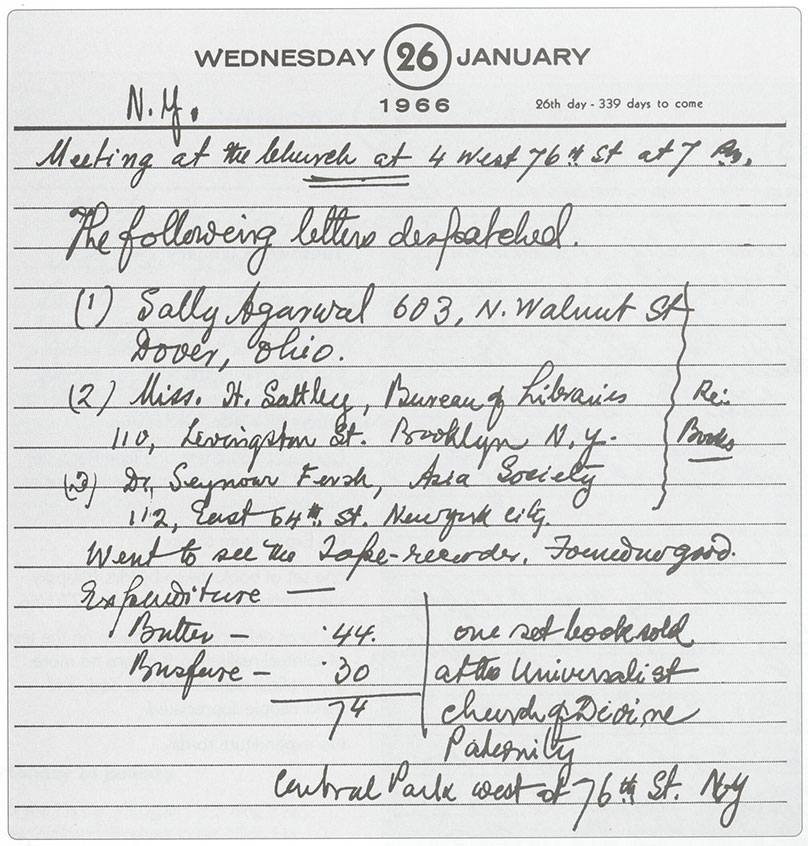 WEDNESDAY 26 JANUARY
1966
26th day - 339 days to come
N.Y.
Meeting at the Church at 4 West 76th St at 7 Pm.
The following letters despatched.
(1) Sally Agarwal 603, N. Walnut St
Dover, Ohio.
(2) Miss. H. Sattley, Bureau of Libraries
110, Levingston St. Brooklyn N.Y.
(3) Dr. Seymour Fersh, Asia Society
112, East 64th St. New York City.
Re:
Books
Went to see the Tape-recorder. Found no good.
Expenditure —
Butter — .44.
Busfare — .30
74
one set book sold
at the Universalist
church of Divine
Paternity
Central Park west at 76th St. NY